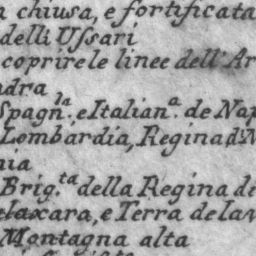 chiusa, e fortificata
delli Ussari
coprire le linee dell' Ar
dra
Spagn.la e Italian.a de Nap
Lombardia, Regina di N
nia
Brig.ta della Regina di
claxara, e Terra de lav
Montagna alta